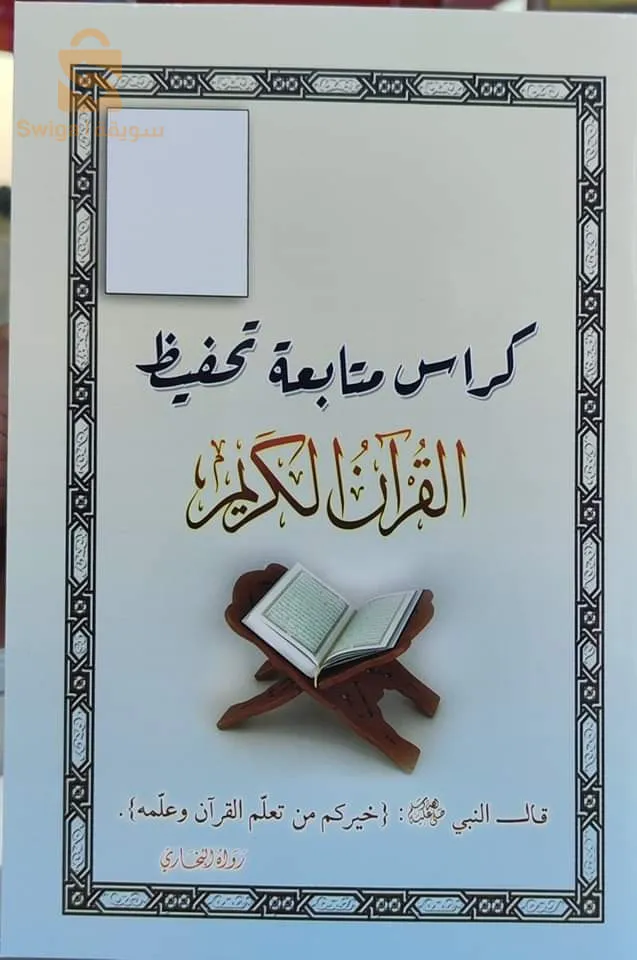 Swiqa سويقة
كراس متابعة تحفيظ
القُرآنُ الكَريم
قال النبي ﷺ: {خيركم من تعلّم القرآن وعلّمه}.
رواه البخاري